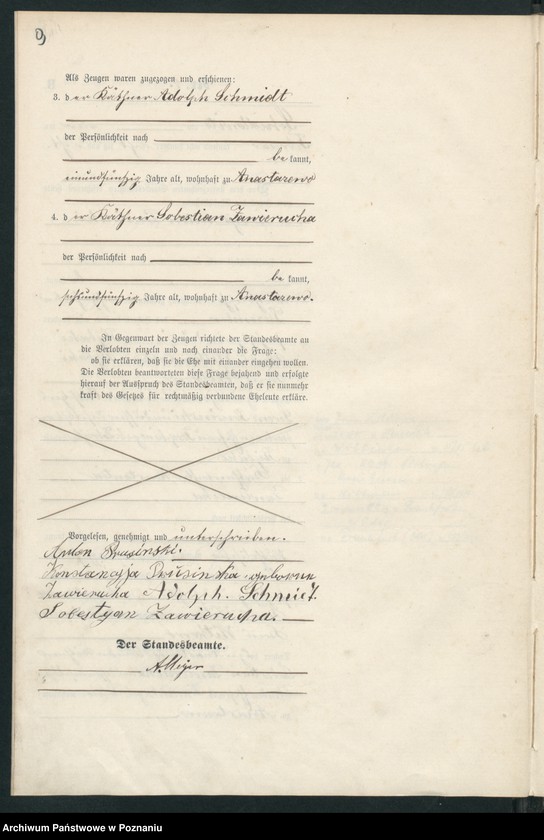 9
Als Zeugen waren zugezogen und erschienen:
3. der Käthner Adolph Schmidt
der Persönlichkeit nach
be kannt,
einundfünfzig Jahre alt, wohnhaft zu Anastazewo
4. der Käthner Sobestian Zawierucha
der Persönlichkeit nach
be kannt,
sechsundfünfzig Jahre alt, wohnhaft zu Anastazewo.
In Gegenwart der Zeugen richtete der Standesbeamte an
die Verlobten einzeln und nach einander die Frage:
ob sie erklären, daß sie die Ehe mit einander eingehen wollen.
Die Verlobten beantworteten diese Frage bejahend und erfolgte
hierauf der Ausspruch des Standesbeamten, daß er sie nunmehr
kraft des Gesetzes für rechtmäßig verbundene Eheleute erkläre.
Vorgelesen, genehmigt und unterschrieben.
Anton Brusinski.
Konstancja Brusinska geborene
Zawierucha Adolph. Schmidt.
Sobestyan Zawierucha.
Der Standesbeamte.
A. Meyer
Archiwum Państwowe w Poznaniu